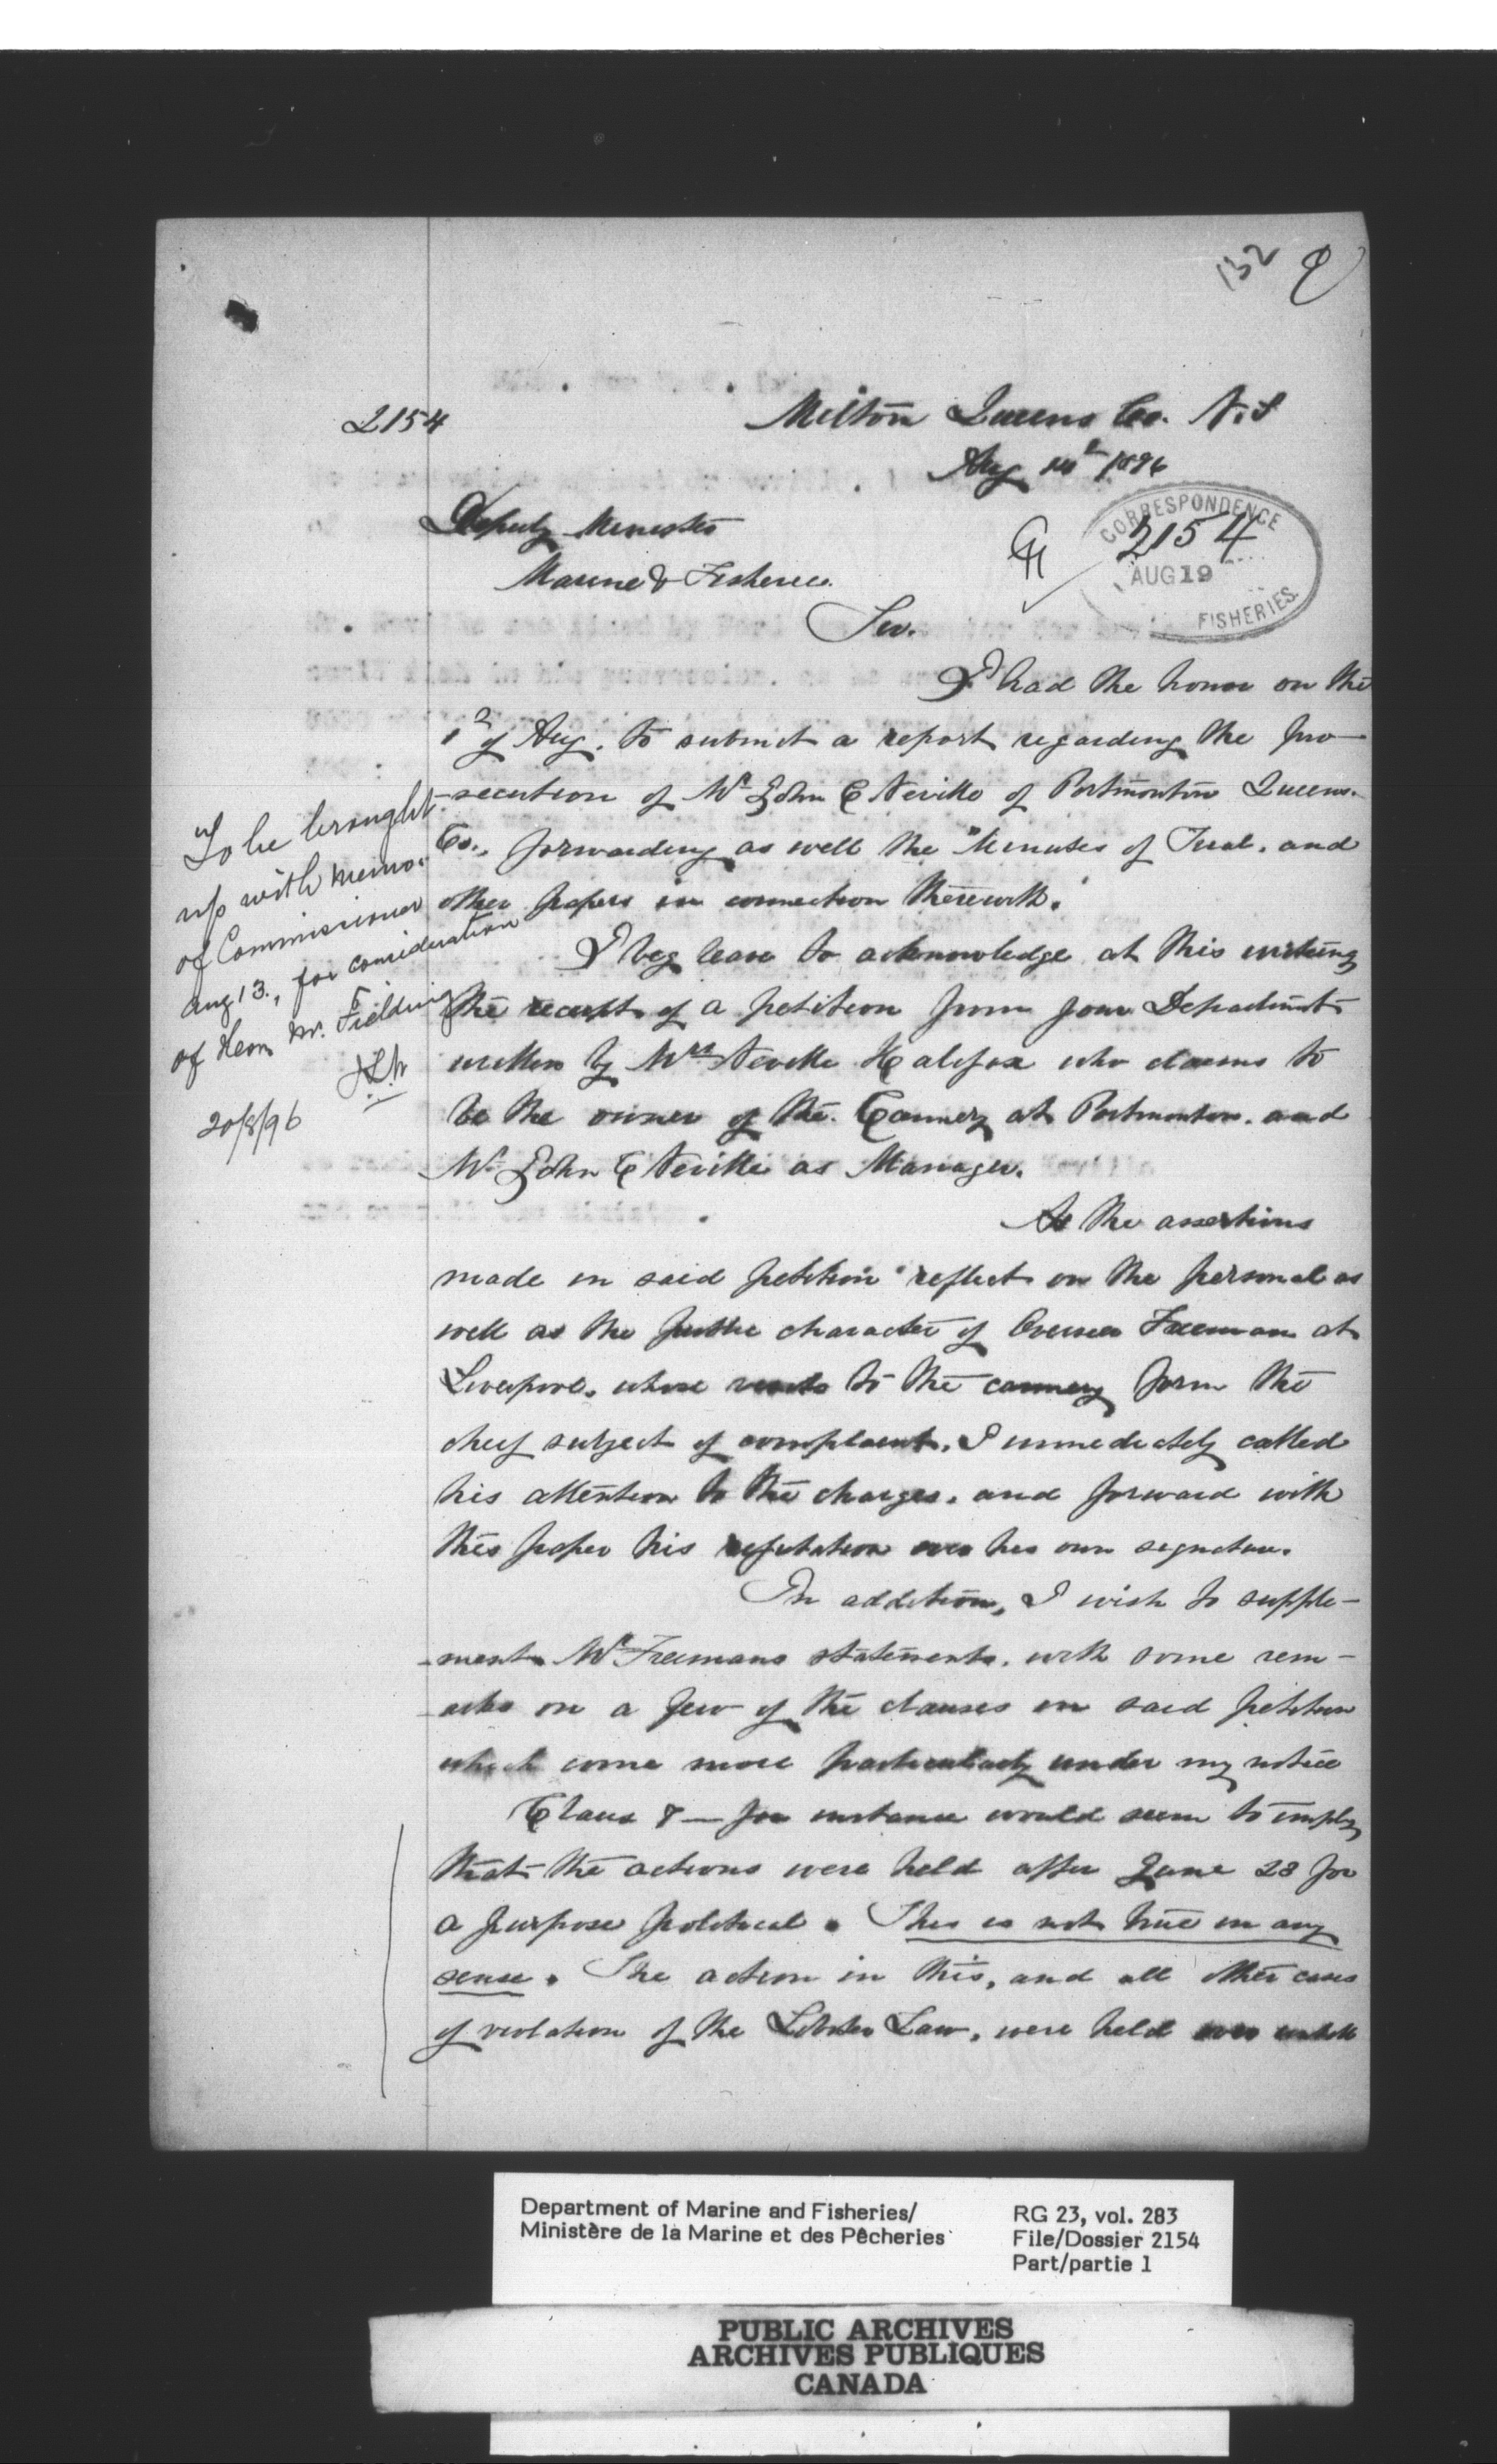 132
2154
Milton Queens Co. N.S
Aug 14th 1896
Deputy Minister
Marine & Fisheries.
CORRESPONDENCE
2154
AUG 19
FISHERIES.
Sir.
I had the honor on the
1st of Aug. to submit a report regarding the pro-
-secution of Mr John C Neville of Portmouton Queens.
Co., forwarding as well the "Minutes of Trial, and
other papers in connection therewith."
I beg leave to acknowledge at this writing
the receipt of a petition from your Department
written by Mrs Neville Halifax who claims to
be the owner of the Cannery at Portmouton. and
Mr John C Neville as Manager.
As the assertions
made in said petition reflect on the personal as
well as the public character of Overseer Freeman at
Liverpool, whose visits to the cannery form the
chief subject of complaint, I immediately called
his attention to the charges, and forward with
this paper his refutation over his own signature.
In addition, I wish to supple-
-ment Mr Freemans statements, with some rem-
-arks on a few of the clauses in said petition
which come more particularly under my notice
Claus 8 — for instance would seem to imply
that the actions were held after June 23 for
a purpose political. This is not true in any
sense. The action in this, and all other cases
of violation of the Lobster Law, were held over until
To be brought
up with memo.
of Commissioner
Aug 13., for consideration
of Hon. Mr. Fielding
20/8/96
Department of Marine and Fisheries/
Ministère de la Marine et des Pêcheries
RG 23, vol. 283
File/Dossier 2154
Part/partie 1
PUBLIC ARCHIVES
ARCHIVES PUBLIQUES
CANADA